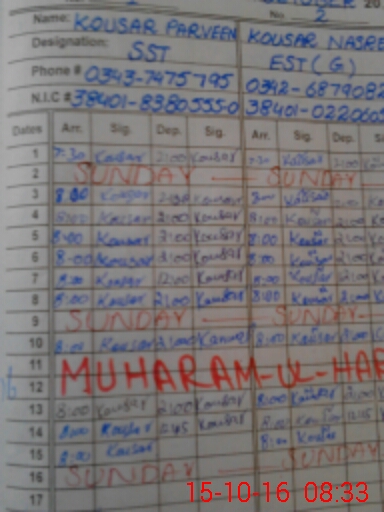 No. 2
Name: KOUSAR PARVEEN KOUSAR NASRE
Designation: SST EST (G)
Phone # 0343-7475795 0342-6879082
N.I.C # 38401-8380555-0 38401-022060
Dates Arr. Sig. Dep. Sig. Arr. Sig. Dep.
1 7:30 Kousar 2:00 Kousar 7:30 Kousar 2:00
2 SUNDAY SUNDAY
3 8:00 Kousar Kousar Kousar
4 8:00 Kousar 2:00 Kousar 8:00 Kousar 2:00
5 8:00 Kousar 2:00 Kousar 8:00 Kousar 2:00
6 8:00 Kousar 2:00 Kousar 8:00 Kousar 2:00
7 8:00 Kousar 12:00 Kousar 8:00 Kousar
8 8:00 Kousar 2:00 Kousar 8:00 Kousar
9 SUNDAY SUNDAY
10 8:00 Kousar 2:00 Kousar 8:00 Kousar
11
12 MUHARAM-UL-HAR
13 8:00 Kousar 2:00 Kousar 8:00 Kousar 2:00
14 8:00 Kousar Kousar 8:00 Kousar
15 8:00 Kousar 8:00 Kousar
16 SUNDAY SUNDAY
17
15-10-16 08:33